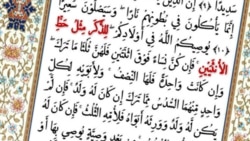 سَدِيدًا (٩) إِنَّ الَّذِينَ
إِنَّمَا يَأْكُلُونَ فِي بُطُونِهِمْ نَارًا وَسَيَصْلَوْنَ سَعِيرًا
(١٠) يُوصِيكُمُ اللَّهُ فِي أَوْلَادِكُمْ لِلذَّكَرِ مِثْلُ حَظِّ
الْأُنْثَيَيْنِ فَإِنْ كُنَّ نِسَاءً فَوْقَ اثْنَتَيْنِ فَلَهُنَّ ثُلُثَا مَا تَرَكَ
وَإِنْ كَانَتْ وَاحِدَةً فَلَهَا النِّصْفُ وَلِأَبَوَيْهِ لِكُلِّ
وَاحِدٍ مِنْهُمَا السُّدُسُ مِمَّا تَرَكَ إِنْ كَانَ لَهُ وَلَدٌ فَإِنْ لَمْ
يَكُنْ لَهُ وَلَدٌ وَوَرِثَهُ أَبَوَاهُ فَلِأُمِّهِ الثُّلُثُ فَإِنْ كَانَ لَهُ
بَعْدِ وَصِيَّةٍ يُوصِي بِهَا أَوْ